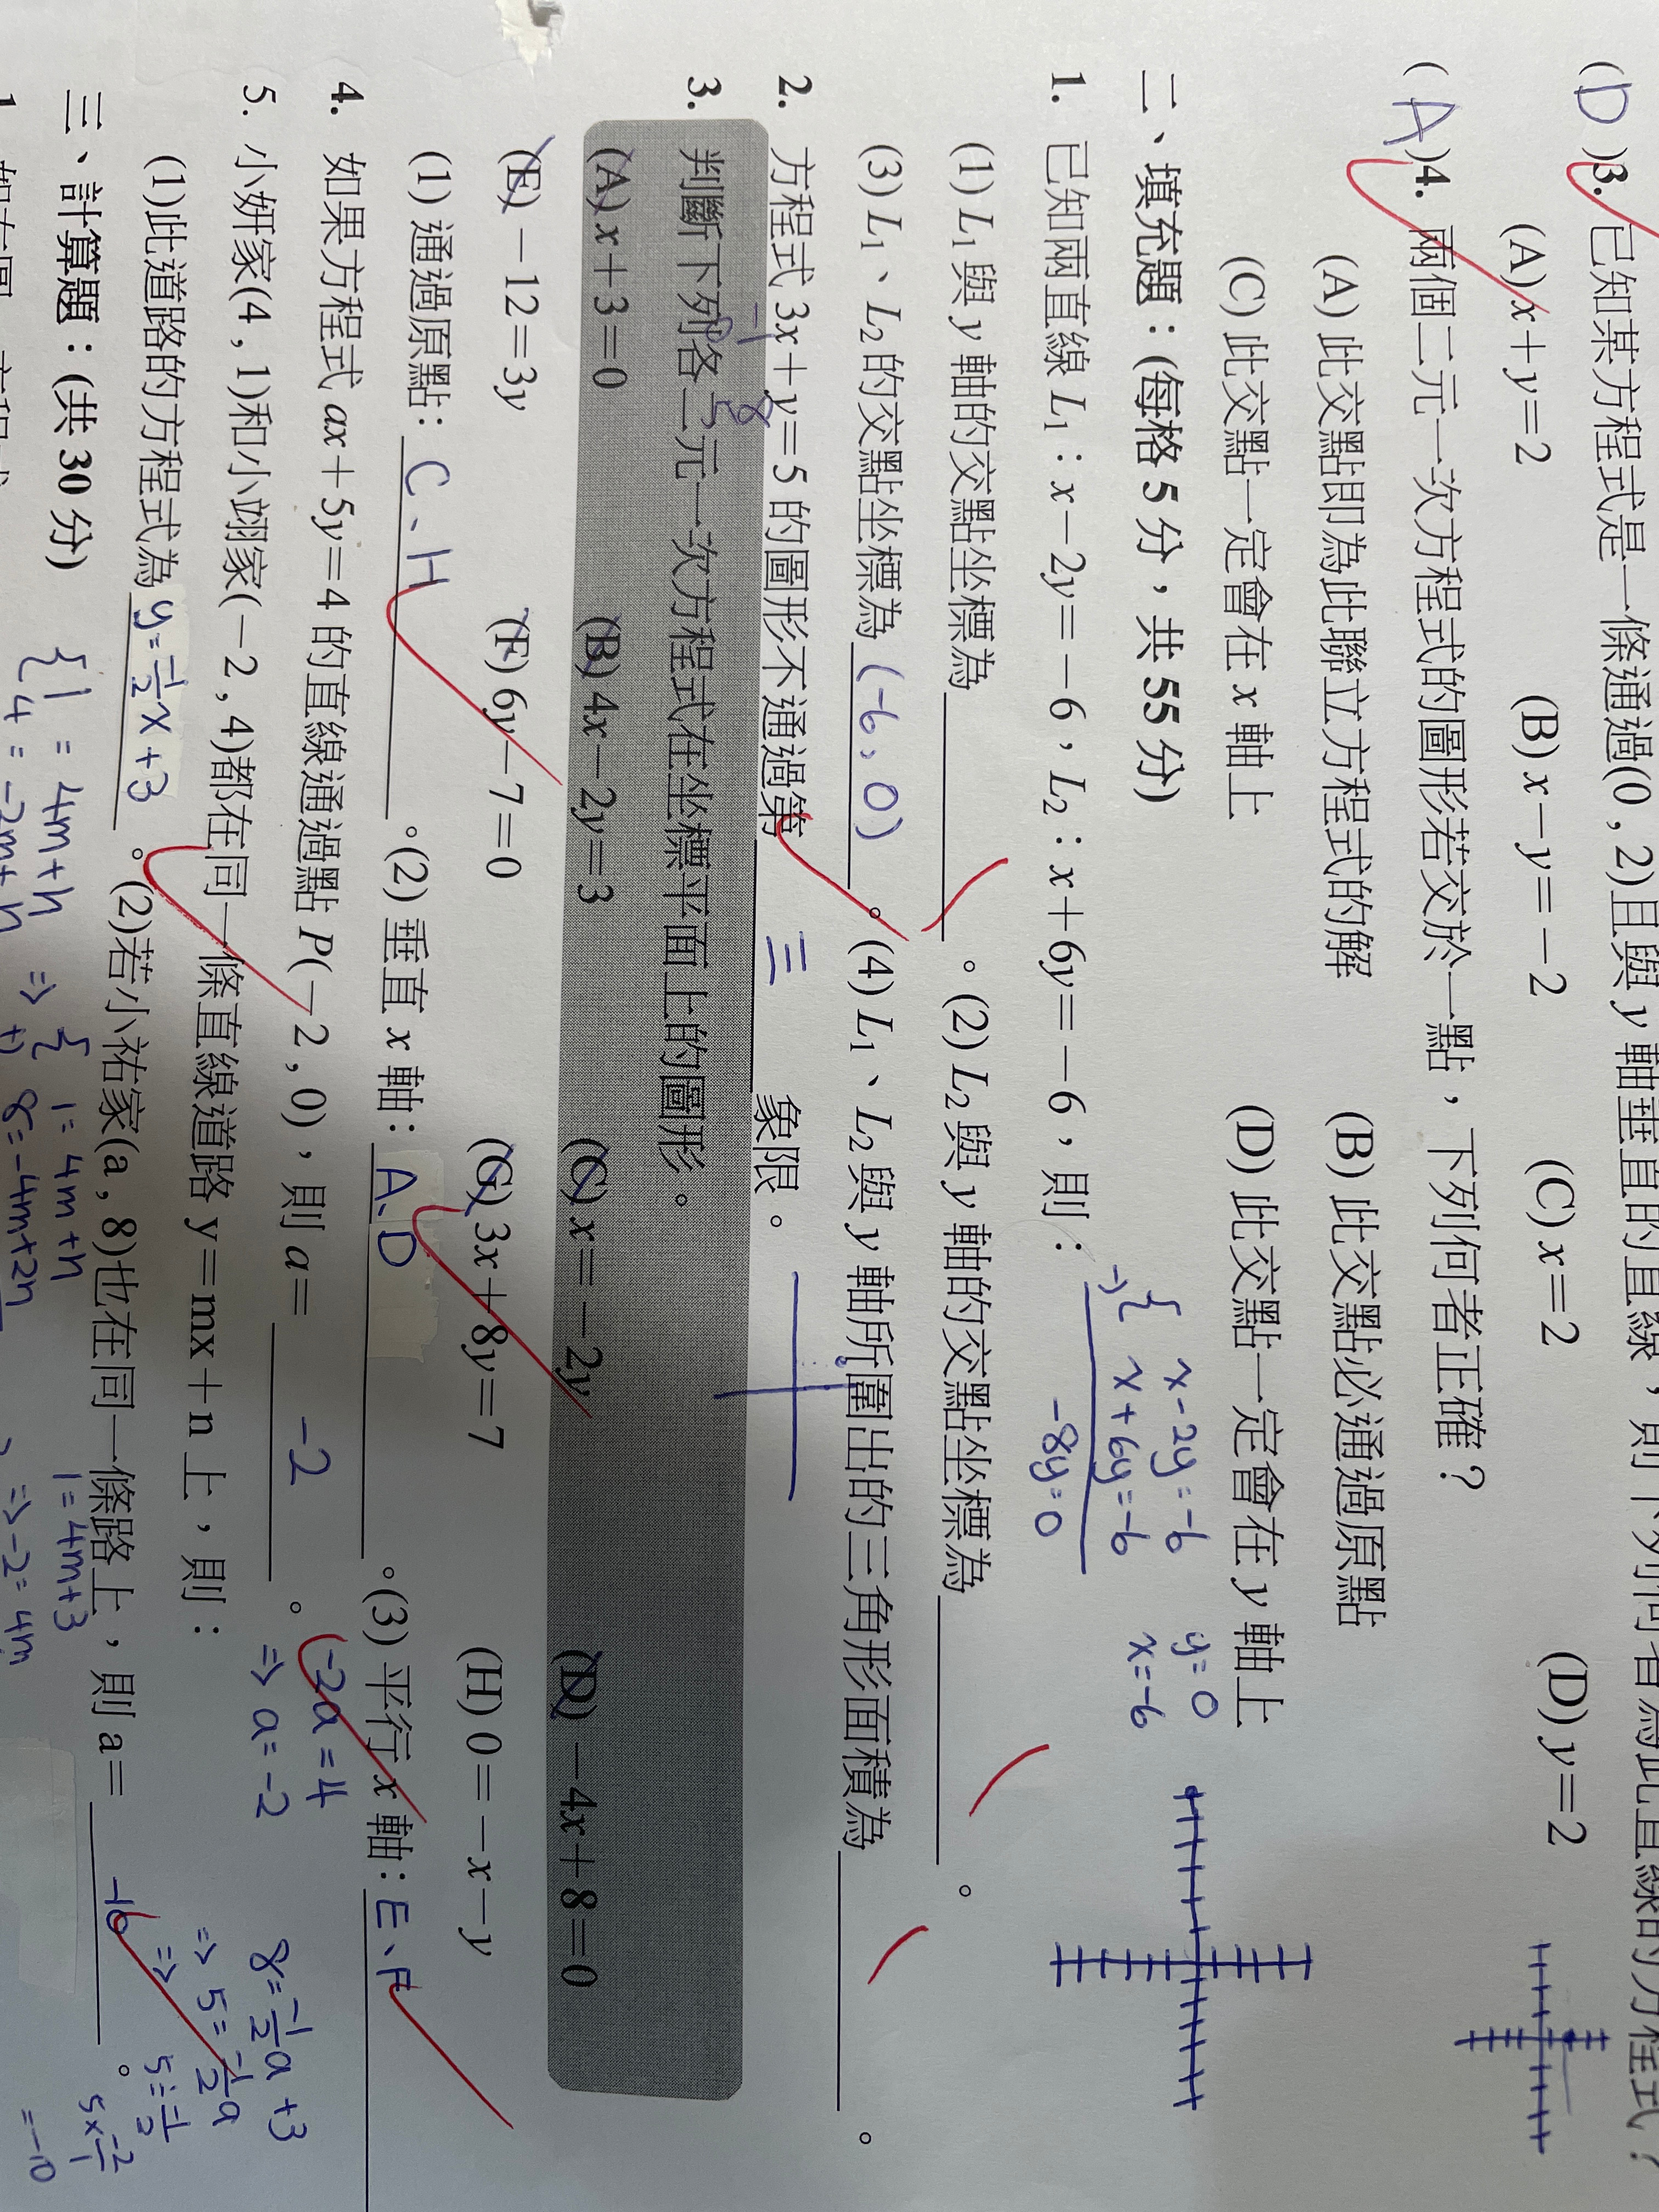 (D)3. 已知某方程式是一條通過(0 , 2)且與 y 軸垂直的直線，則下列何者為此直線的方程式？
(A) x＋y＝2 (B) x－y＝－2 (C) x＝2 (D) y＝2
(A)4. 兩個二元一次方程式的圖形若交於一點，下列何者正確？
(A) 此交點即為此聯立方程式的解 (B) 此交點必通過原點
(C) 此交點一定會在 x 軸上 (D) 此交點一定會在 y 軸上
二、填充題：(每格 5 分，共 55 分)
1. 已知兩直線 L₁：x－2y＝－6，L₂：x＋6y＝－6，則：
x-2y=-6
⇒{ x+6y=-6
-8y=0
y=0
x=-6
(1) L₁ 與 y 軸的交點坐標為＿＿＿。(2) L₂ 與 y 軸的交點坐標為＿＿＿。
(3) L₁、L₂ 的交點坐標為 (-6, 0) 。(4) L₁、L₂ 與 y 軸所圍出的三角形面積為＿＿＿。
2. 方程式 3x＋y＝5 的圖形不通過第 三 象限。
-1 8
0 5
3. 判斷下列各二元一次方程式在坐標平面上的圖形。
(A) x＋3＝0 (B) 4x－2y＝3 (C) x＝－2y (D) －4x＋8＝0
(E) －12＝3y (F) 6y－7＝0 (G) 3x＋8y＝7 (H) 0＝－x－y
(1) 通過原點：C、H 。(2) 垂直 x 軸：A、D 。(3) 平行 x 軸：E、F
4. 如果方程式 ax＋5y＝4 的直線通過點 P(－2 , 0)，則 a＝ -2 。
-2a=4
⇒ a=-2
5. 小妍家(4 , 1)和小翊家(－2 , 4)都在同一條直線道路 y＝mx＋n 上，則：
(1)此道路的方程式為 y=-1/2x+3 。(2)若小祐家(a , 8)也在同一條路上，則 a＝ -10 。
8=-1/2a+3
⇒ 5=-1/2a
⇒ 5÷-1/2
5×-2/1
=-10
三、計算題：(共 30 分)
{1=4m+n ⇒ {1=4m+n 1=4m+3
4=-2m+n +) 8=-4m+2n ⇒-2=4m